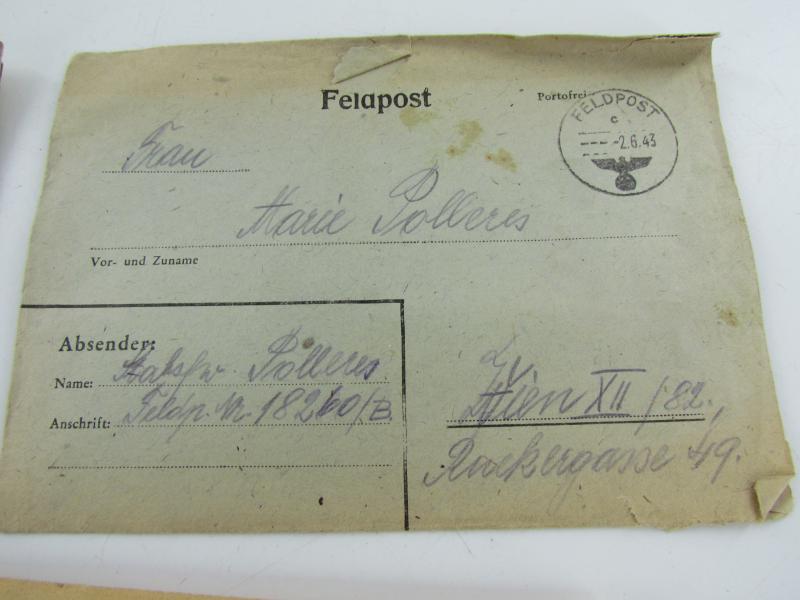 Feldpost
Portofrei
FELDPOST
c
-2.6.43
Frau
Marie Polleres
Vor- und Zuname
Absender:
Name: Stabsfw. Polleres
Anschrift: Feldp. Nr. 18260/B.
Wien XII/82.
Ruckergasse 49.